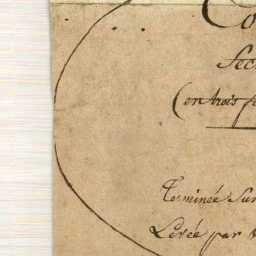 Co
Sec
Contrôs fe
Terminée Sur
Levée par